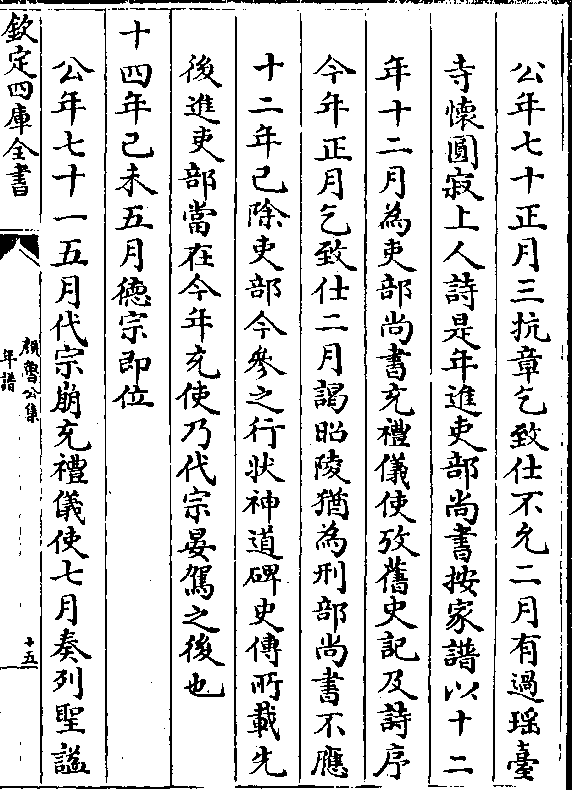 公年七十正月三抗章乞致仕不允二月有過瑶臺
寺懷圓寂上人詩是年進吏部尚書按家譜以十二
年十二月為吏部尚書充禮儀使攷舊史記及詩序
今年正月乞致仕二月謁昭陵猶為刑部尚書不應
十二年已除吏部今參之行状神道碑史傳所載先
後進吏部當在今年充使乃代宗晏駕之後也
十四年己未五月德宗即位
公年七十一五月代宗崩充禮儀使七月奏列聖諡
欽定四庫全書
顔魯公集
年譜
十五